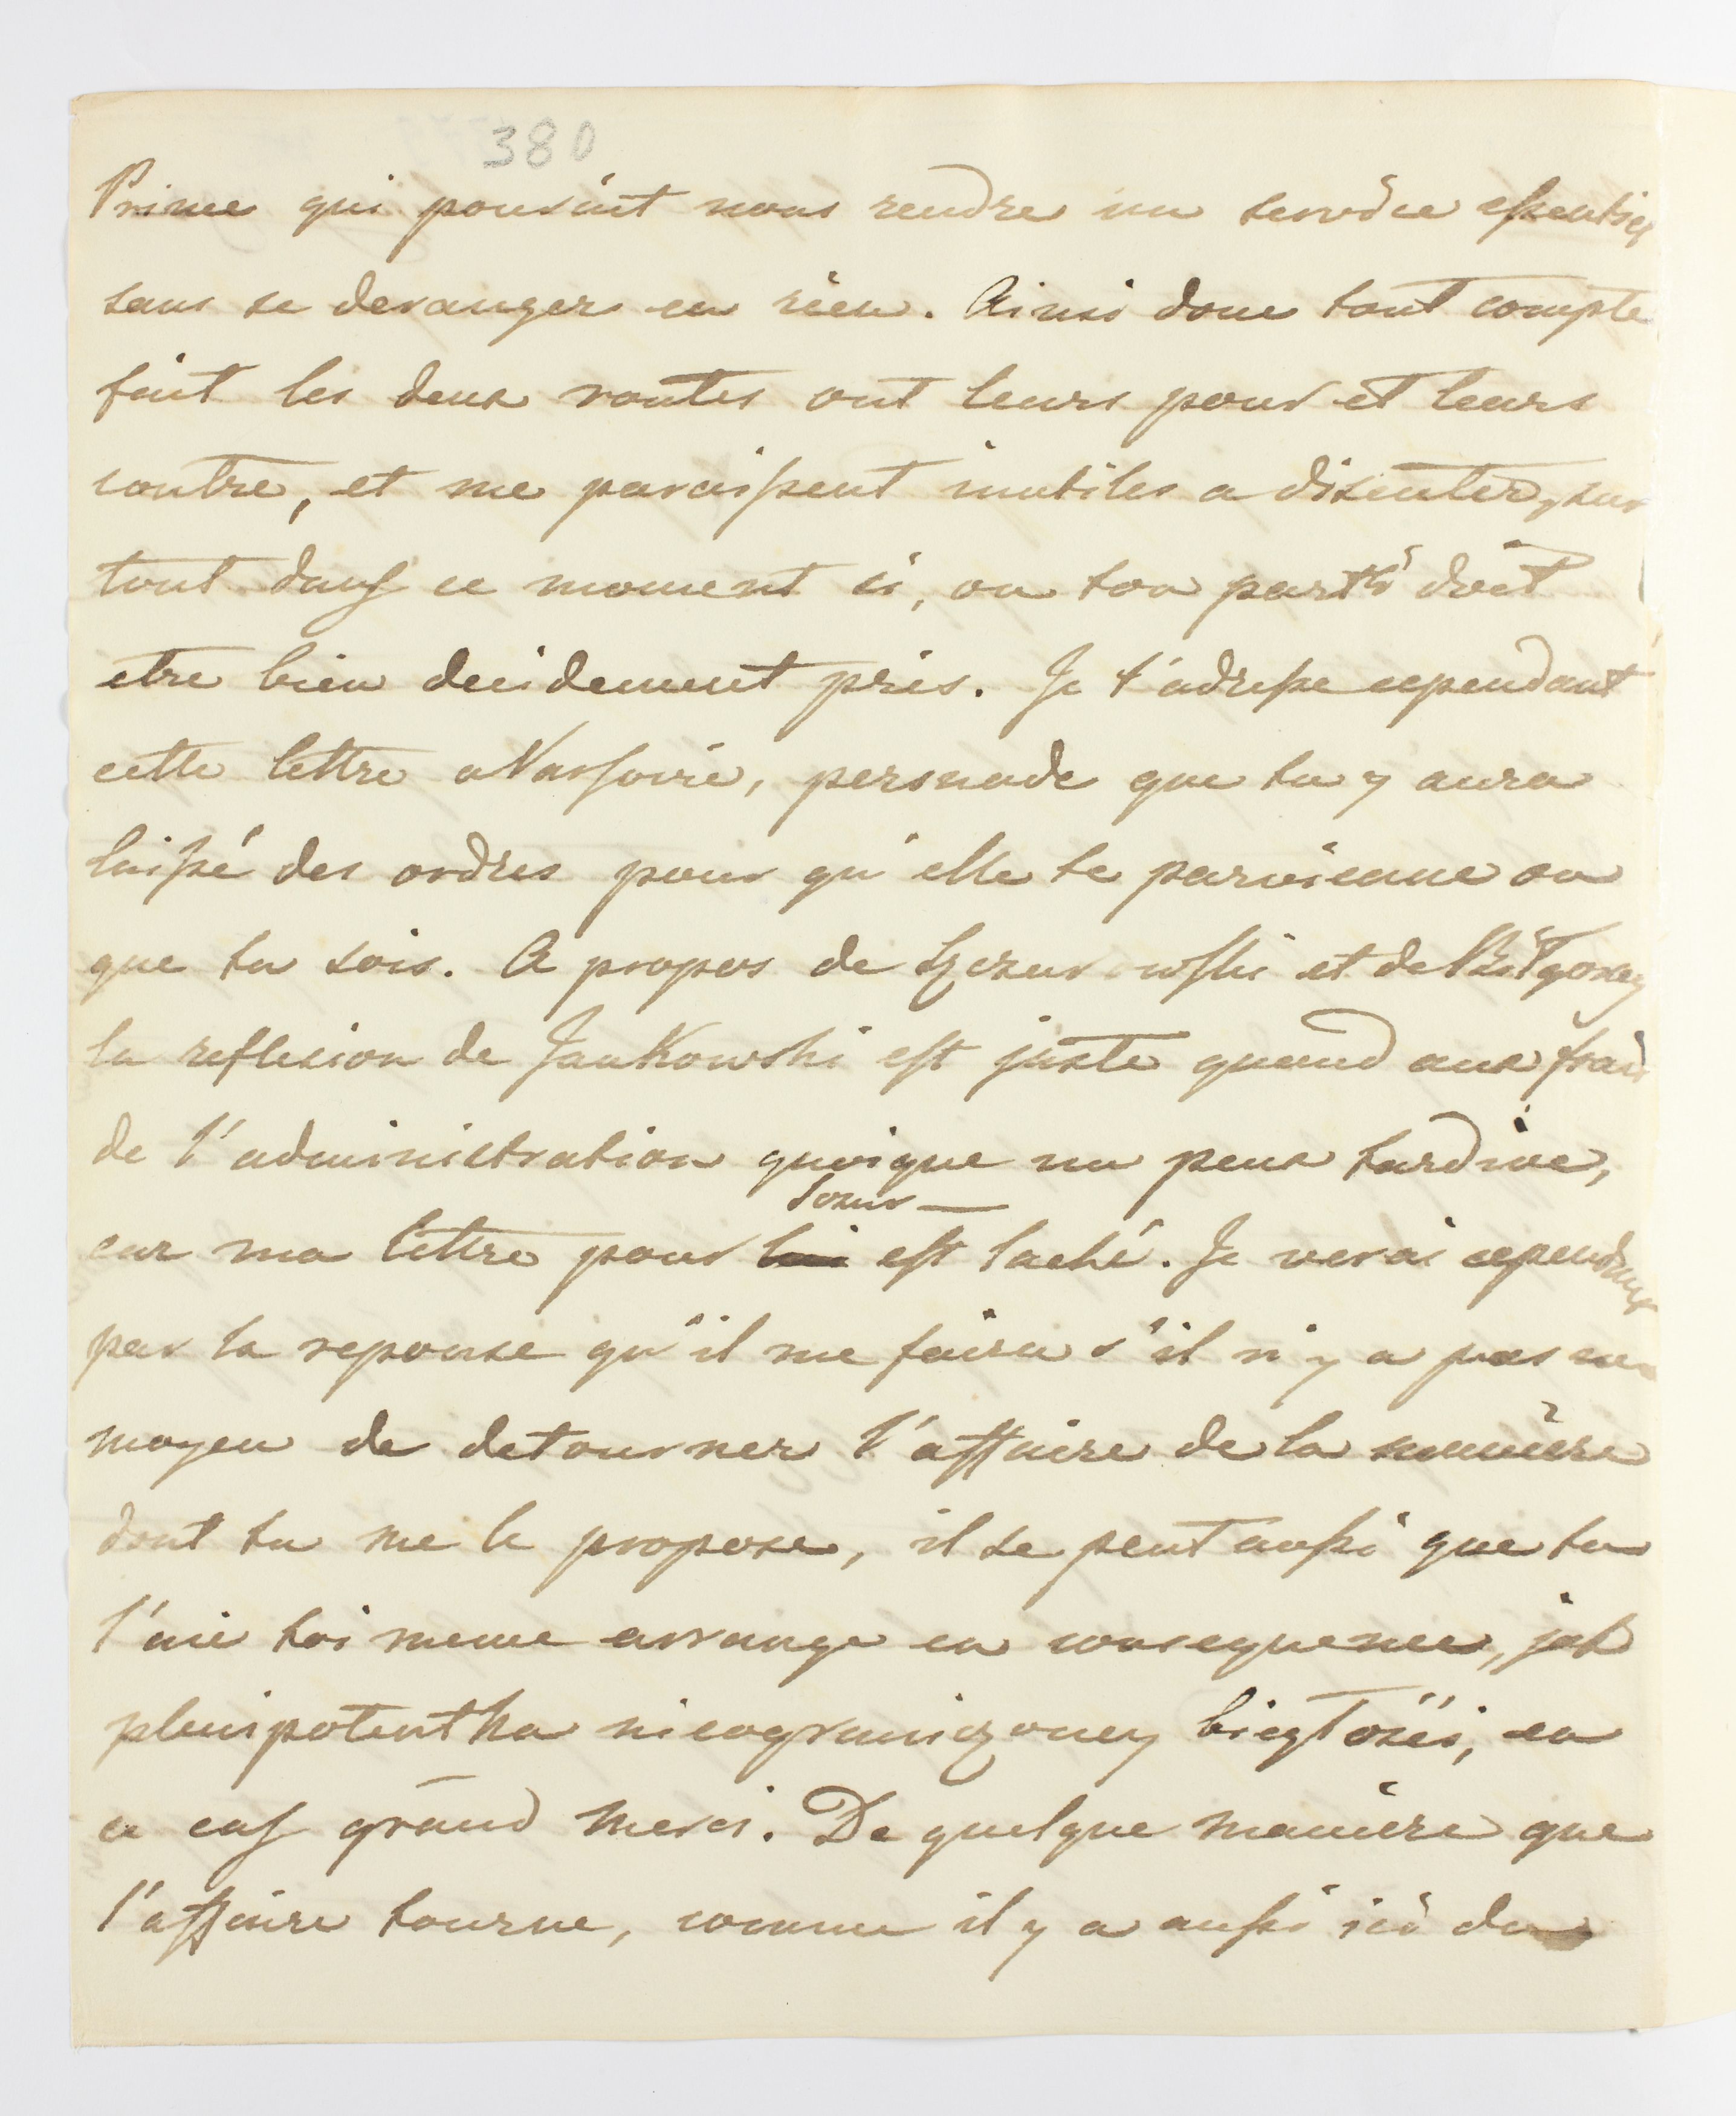 380
Prince qui pouvait nous rendre un service essentiel
sans se deranger en rien. Ainsi donc tout compte
fait les deux routes ont leurs pour et leurs
contre, et me paraissent inutiles a discuter, sur
tout dans ce moment ci, ou ton parti doit
etre bien decidement pris. Je t'adresse cependant
cette lettre a Varsovie, persuade que tu y aura
laissé des ordres pour qu'elle te parvienne ou
que tu sois. A propos de et de
la reflexion de Jankowski est juste quand aux frais
de l'administration quoique un peux tardive,
Sour
car ma lettre pour est laché. Je verai cependant
par la reponse qu'il me faira s'il n'y a pas un
moyen de detourner l'affaire de la maniere
dont tu me le propose, il se peut aussi que tu
l'aie toi meme arrange en consequence, jak
plenipotentka nieograniczoney biegłości, en
ce cas grand merci. De quelque maniere que
l'affaire tourne, comme il y a aussi ici du